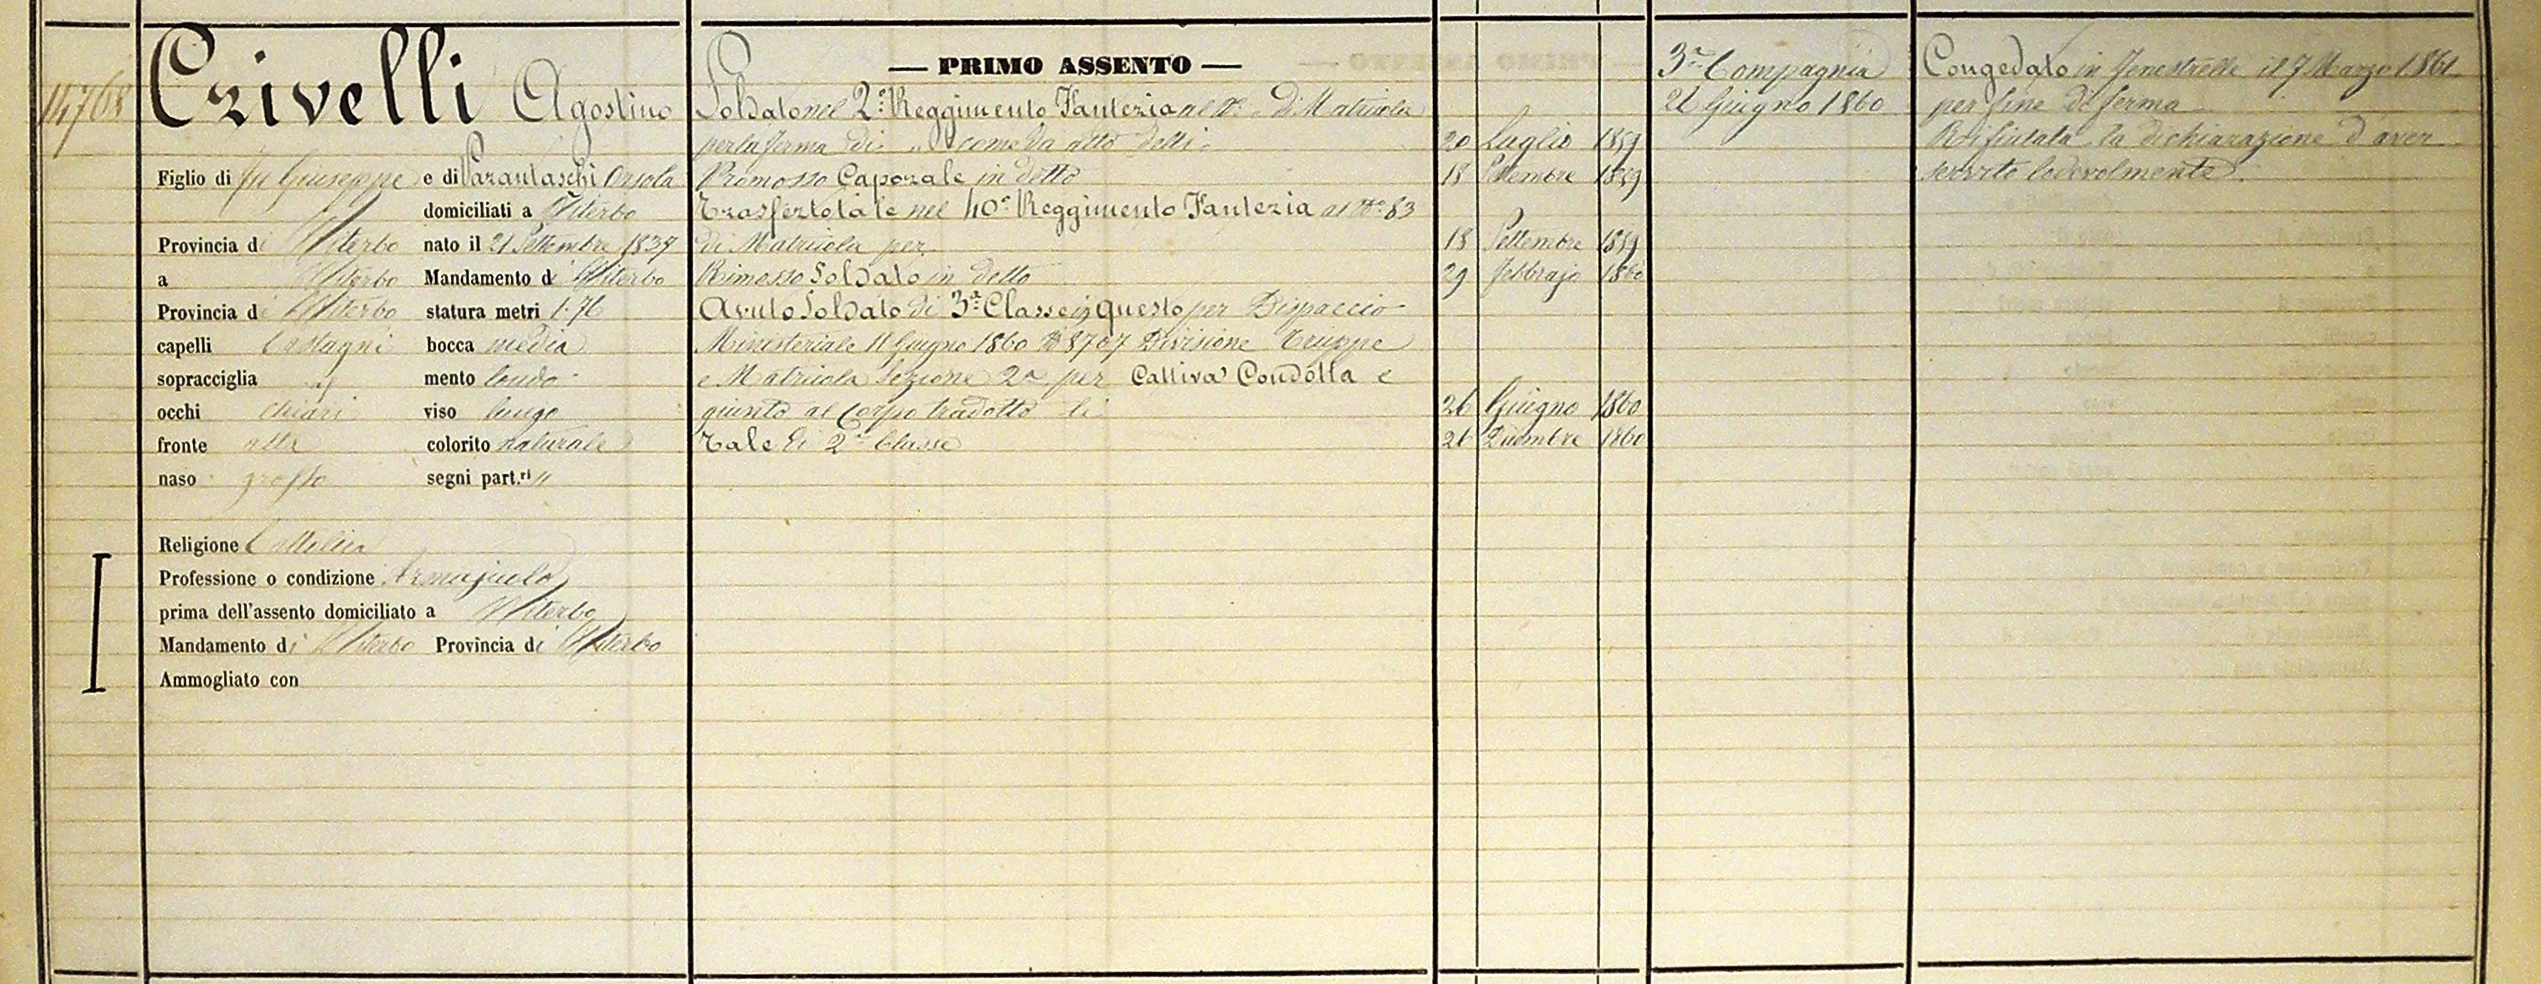 14768
Crivelli Agostino
Figlio di fu Giuseppe e di Parantaschi Orsola
domiciliati a Viterbo
Provincia di Viterbo nato il 21 Settembre 1837
a Viterbo Mandamento di Viterbo
Provincia di Viterbo statura metri 1.76
capelli Castagni bocca media
sopracciglia id mento tondo
occhi chiari viso lungo
fronte alta colorito naturale
naso grosso segni part.ri "
Religione Cattolica
Professione o condizione Armajuolo
prima dell'assento domiciliato a Viterbo
Mandamento di Viterbo Provincia di Viterbo
Ammogliato con
— PRIMO ASSENTO —
Soldato nel 2° Reggimento Fanteria al N° " di Matricola
per la ferma di " come da atto delli 20 Luglio 1859
Promosso Caporale in detto 18 Settembre 1859
Trasferto tale nel 40° Reggimento Fanteria al N° 83
di Matricola per 18 Settembre 1859
Rimosso Soldato in detto 29 Febbrajo 1860
Avuto Soldato di 3a Classe in questo per Dispaccio
Ministeriale 11 Giugno 1860 N° 8707 Divisione Truppe
e Matricola Sezione 2a per Cattiva Condotta e
giunto al Corpo tradotto li 26 Giugno 1860
Tale di 2a Classe 26 Dicembre 1860
3a Compagnia
26 Giugno 1860
Congedato in Fenestrelle il 7 Marzo 1861
per fine di ferma
Rifiutata la dichiarazione d'aver
servito lodevolmente.